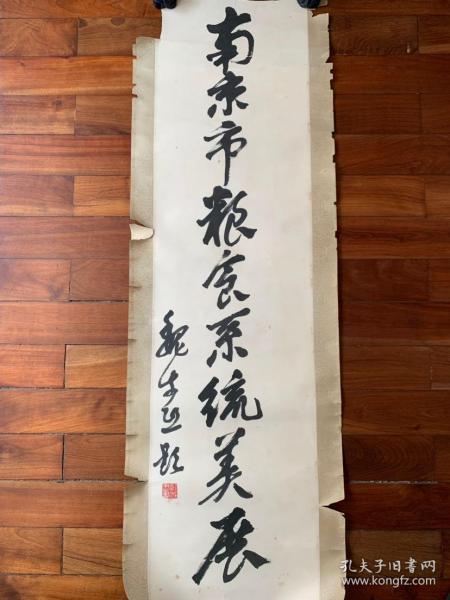 南京市粮食系统美展
魏 题
孔夫子旧书网
www.kongfz.com